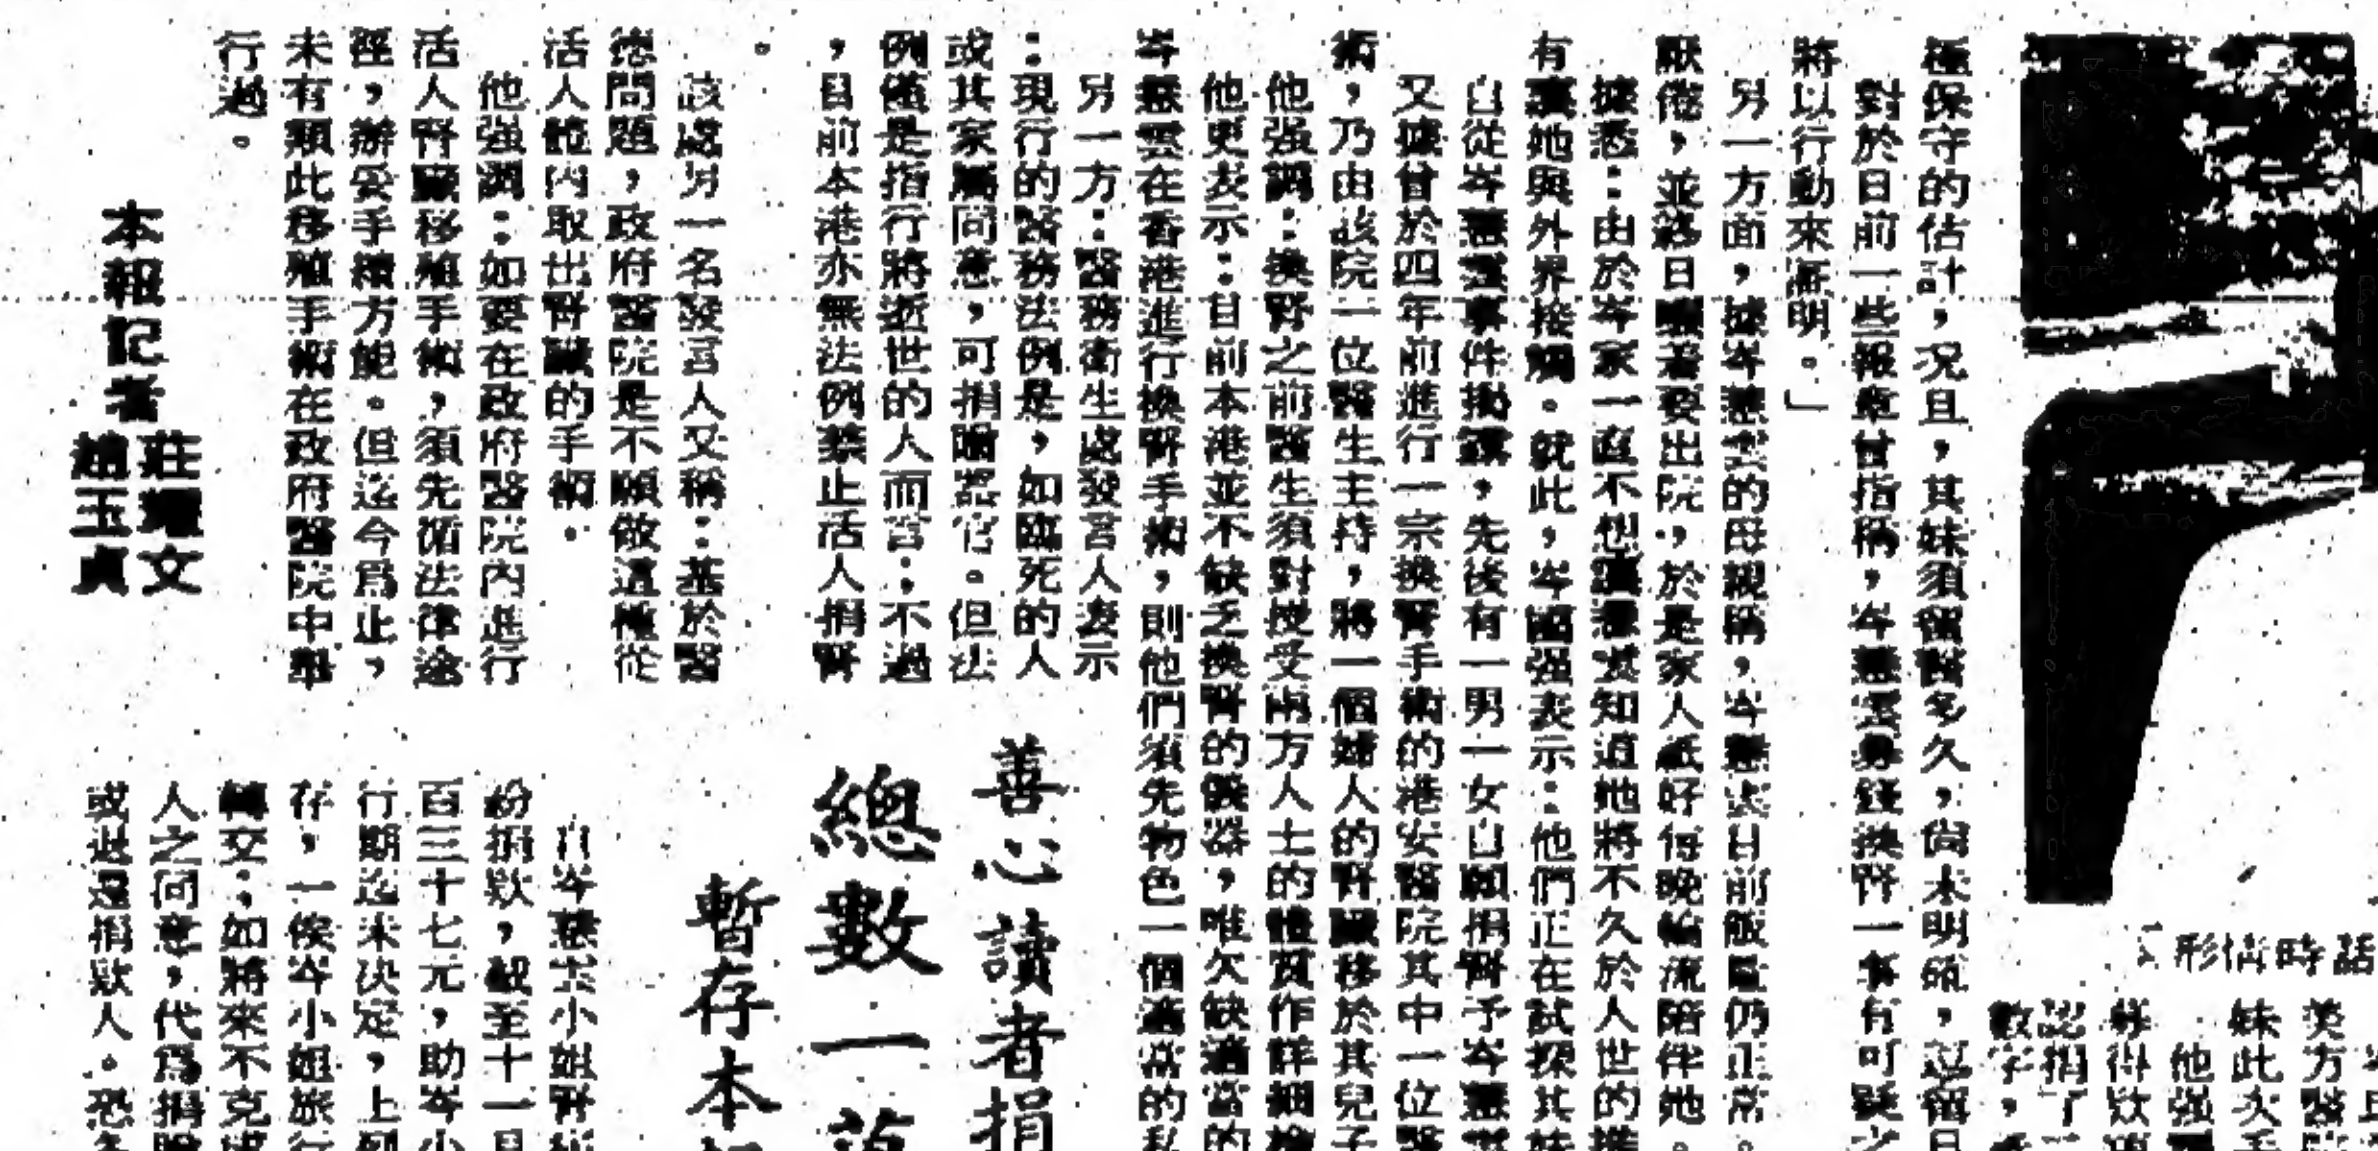 形情時話
美方醫院
妹此次手
他强
得欵
認捐了一
數字，
極保守的估計，况且，其妹須留醫多久，尙未明確，
對於日前一些報章曾指稱，岑慧雲身錢換腎一事有可疑之
將以行動來証明。」
另一方面，據岑慧雲的母親稱，岑慧雲日前飯量仍正常。
厭倦，並終日嚷着要出院，於是家人祗好每晚輪流陪伴她。
據悉：由於岑家一直不想讓慧雲知道她將不久於人世的
有讓她與外界接觸。就此，岑國强表示：他們正在試探其妹
自從岑慧雲事件揭露，先後有一男一女自願捐腎予岑慧雲
又據曾於四年前進行一宗換腎手術的港安醫院其中一位醫
術，乃由該院一位醫生主持，將一個婦人的腎臟移於其兒子
他强調：換腎之前醫生須對授受兩方人士的體質作詳細檢
他更表示：目前本港並不缺乏換腎的儀器，唯欠缺適當的
岑慧雲在香港進行換腎手術，則他們須先物色一個適當的私
另一方：醫務衛生處發言人表示
：現行的醫務法例是，如臨死的人
或其家屬同意，可捐贈器官。但法
例僅是指行將逝世的人而言；不過
，目前本港亦無法例禁止活人捐腎
。
該處另一名發言人又稱：基於醫
德問題，政府醫院是不願做這種從
活人體內取出腎臟的手術。
他强調：如要在政府醫院內進行
活人腎臟移殖手術，須先循法律途
徑，辦妥手續方能。但迄今爲止，
未有類此移殖手術在政府醫院中舉
行過。
本報記者
莊 文
趙玉貞
善心讀者捐
總數一萬
暫存本
自岑慧雲小姐腎
紛捐欵，截至十一月
百三十七元，助岑小
行期迄未決定，上列
存，一俟岑小姐旅行
轉交；如將來不克
人之同意，代爲捐贈
或退還捐欵人。恐